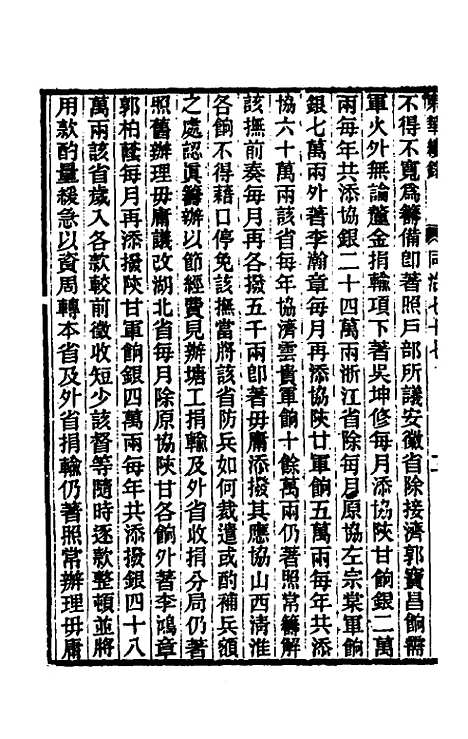 東華續錄 同治七十七 二
不得不寬爲籌備卽著照戶部所議安徽省除接濟郭寶昌餉需
軍火外無論釐金捐輸項下著吳坤修每月添協陝甘餉銀二萬
兩每年共添協銀二十四萬兩浙江省除每月原協左宗棠軍餉
銀七萬兩外著李瀚章每月再添協陝甘軍餉五萬兩每年共添
協六十萬兩該省每年協濟雲貴軍餉十餘萬兩仍著照常籌解
該撫前奏每月再各撥五千兩卽著毋庸添撥其應協山西淸淮
各餉不得藉口停免該撫當將該省防兵如何裁遣或酌補兵額
之處認眞籌辦以節經費見辦塘工捐輸及外省收捐分局仍著
照舊辦理毋庸議改湖北省每月除原協陝甘各餉外著李鴻章
郭柏蔭每月再添撥陝甘軍餉銀四萬兩每年共添撥銀四十八
萬兩該省歲入各款較前徵收短少該督等隨時逐款整頓並將
用款酌量緩急以資周轉本省及外省捐輸仍著照常辦理毋庸